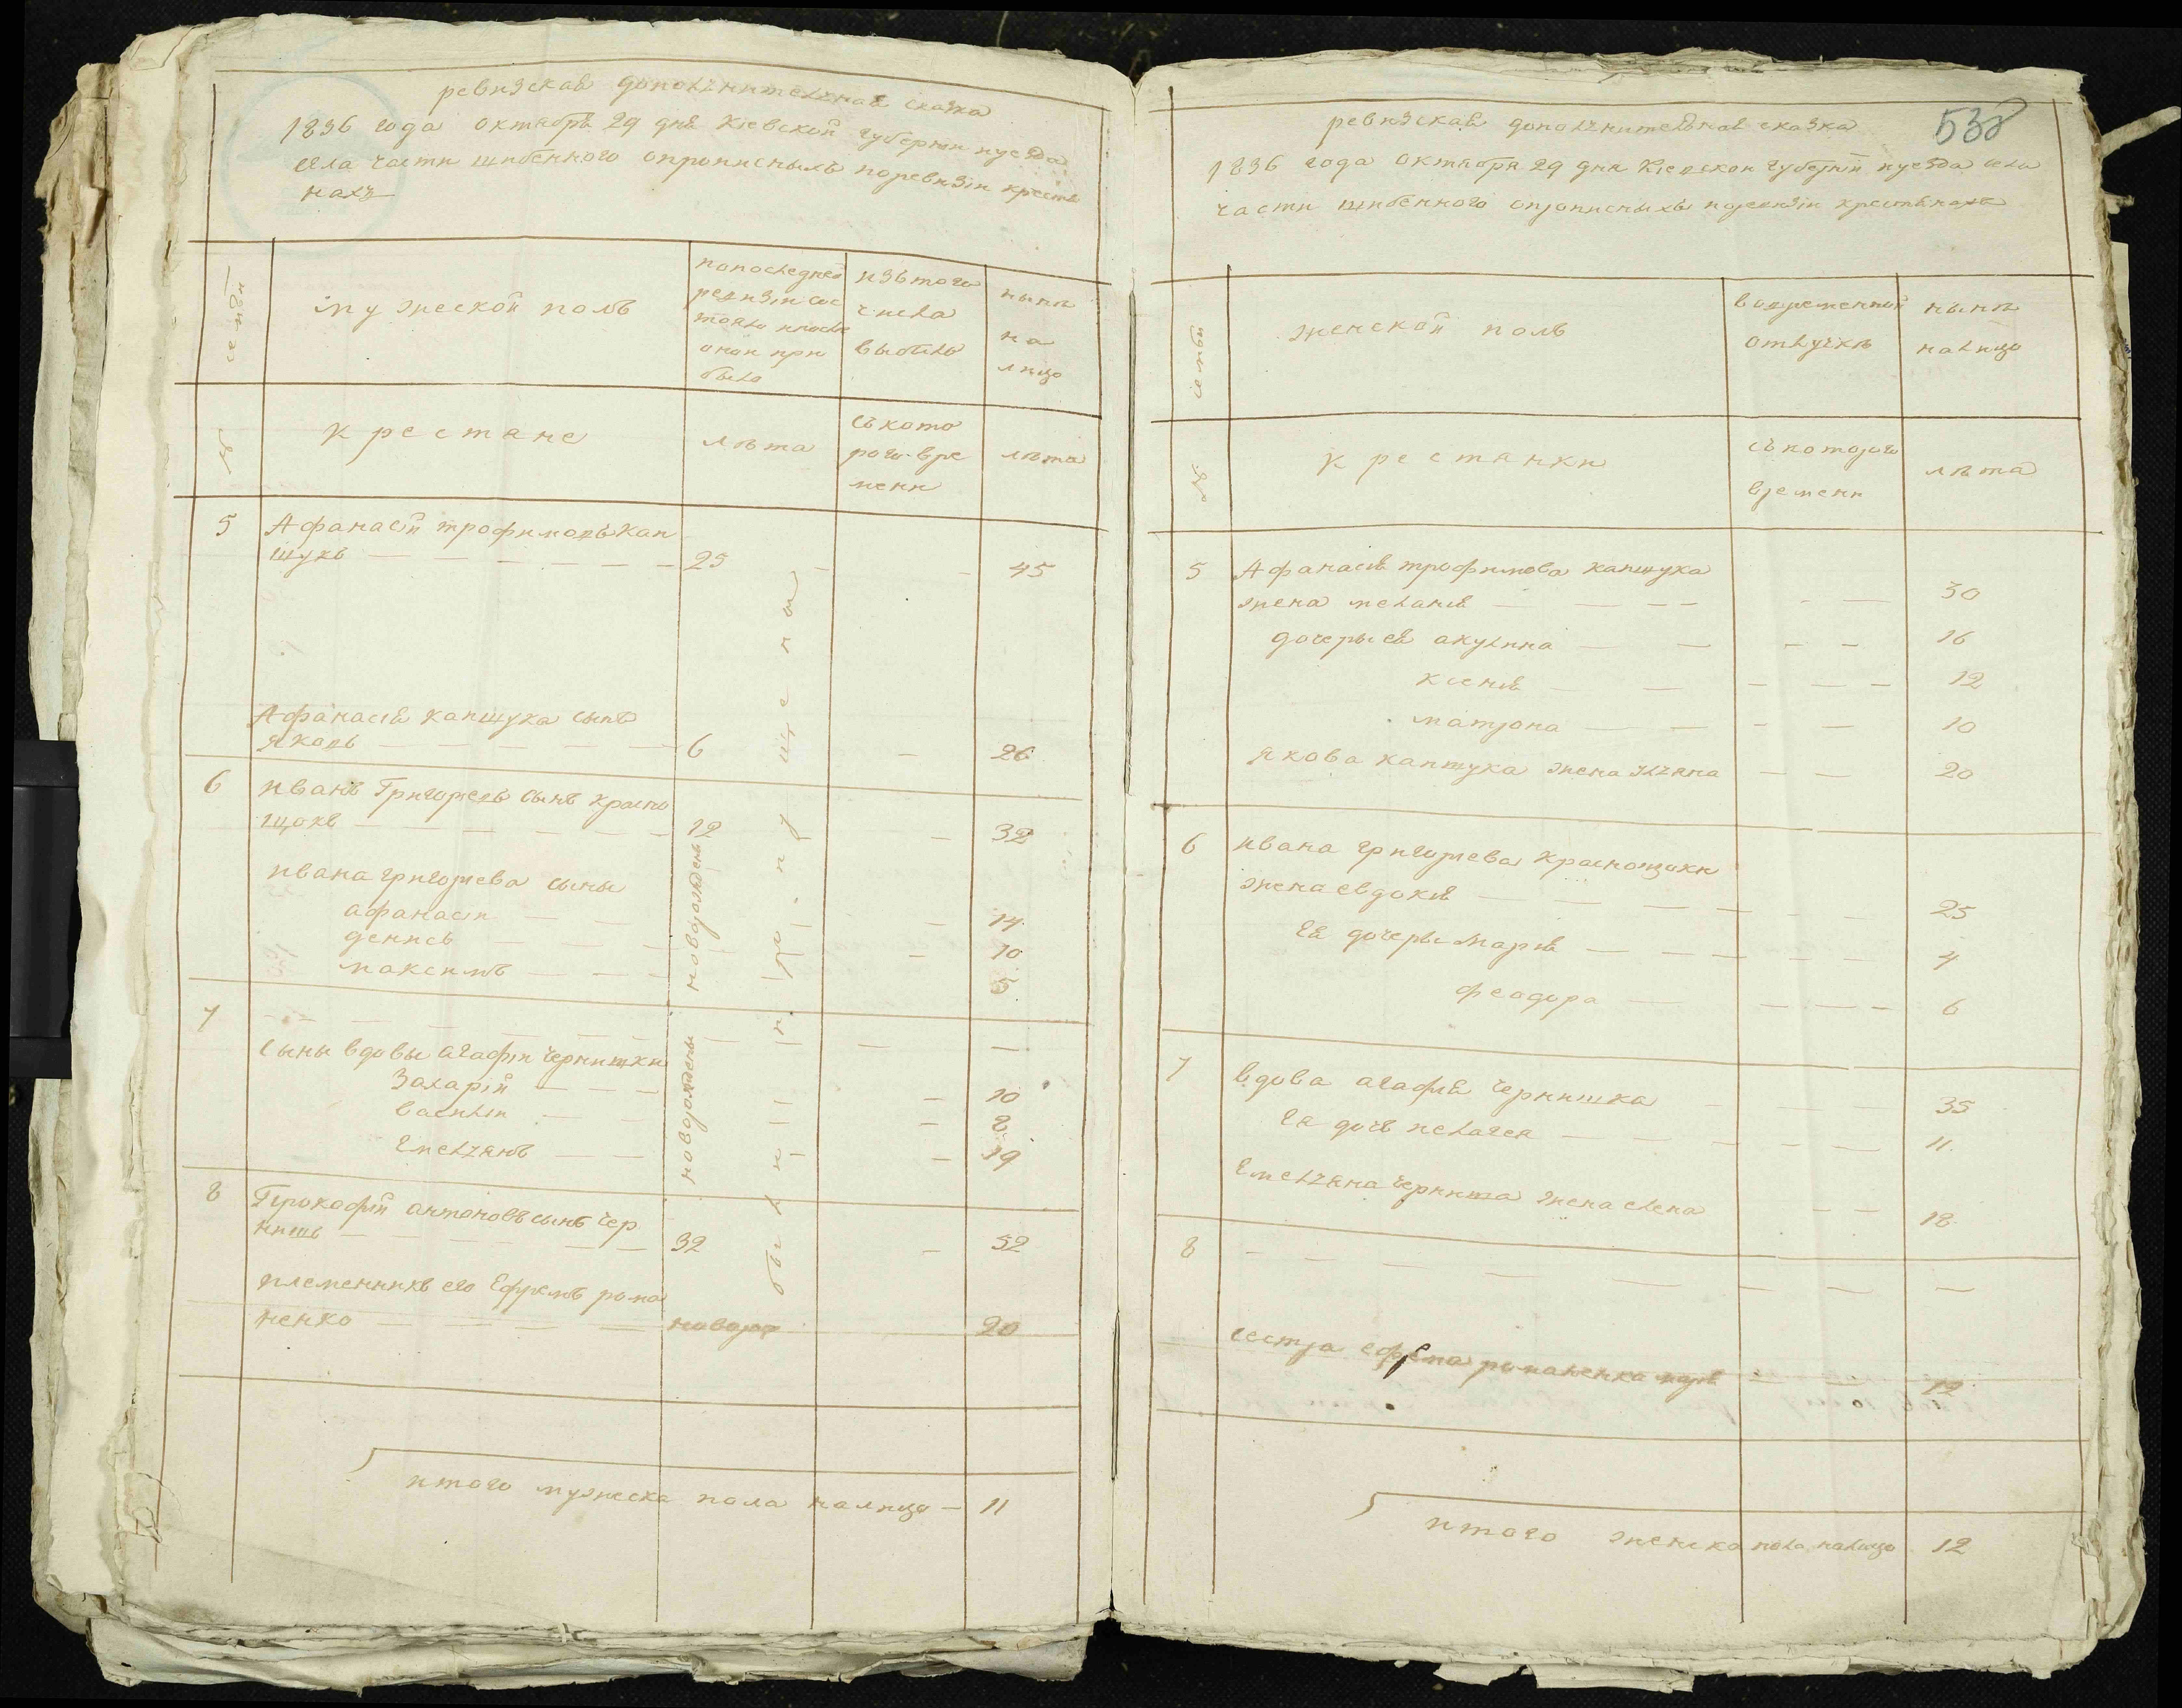 ревизская дополнительная сказка
1836 года октября 29 дня Кіевской губерніи иуезда
села части шибенного опрописныхъ поревизіи крестя
нахъ
семьи
мужеской полъ
попоследней
ревизіи сос
тояло ипосле
оной при
было
изътого
числа
выбыло
ныне
на
лицо
№
крестяне
лѣта
съкото
раго вре
мени
лѣта
5 Афанасій трофимовъ Кап
шукъ — 25 — 45
Афанасія капшука сынъ
яковъ — 6 — 26
6 иванъ Григорьевъ сынъ красно
щокъ — 12 — 32
ивана григорьева сыны
афанасіи — 14
денисъ — 10
максимъ — 5
новорождены
7 — — —
сыны вдовы агафіи чернишки
Захарій — 10
василіи — 8
Емельянъ — 19
новорождены
8 Прокофій антоновъ сынъ чер
нишъ — 32 — 52
племенникъ его Ефремъ рома
ненко — новорож — 20
итого мужеска пола налицо — 11
538
ревизская дополнителная сказка
1836 года октября 29 дня Кіевскои губерніи иуезда села
части шибенного опрописныхъ поревизіи крестянахъ
семьи
женской полъ
вовременной
отлучкѣ
ныне
налицо
№
крестянки
съкотораго
времени
лѣта
5 Афанасія трофимова капшука
жена меланія — 30
дочеры ея акулина — 16
ксенія — 12
матрона — 10
якова капшука жена улияна — 20
6 ивана григорьева красношоки
жена евдокія — 25
Ея дочеры марія — 4
феодора — 6
7 вдова агафія чернишка — 35
Ея дочь пелагея — 11
Емельяна черниша жена елена — 18
8 — — —
сестра ефрема романенка марія — 12
итого женска пола налицо 12